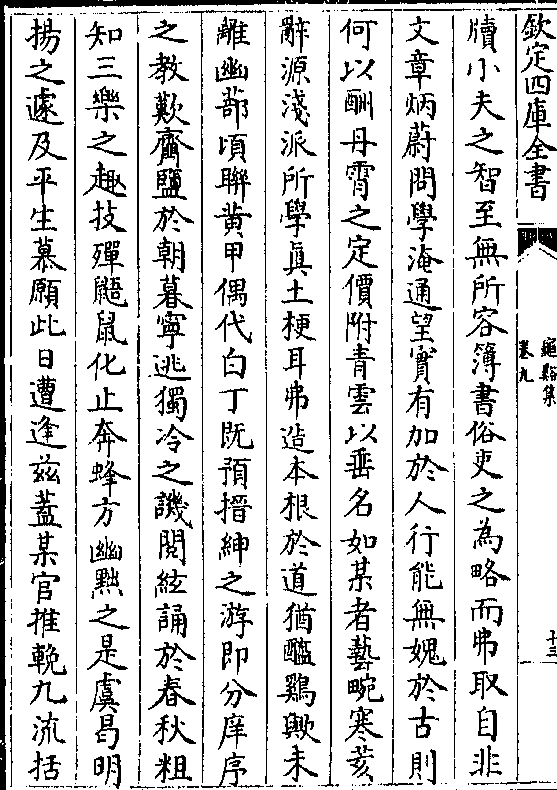 欽定四庫全書
龜谿集
卷九
十三
牘小夫之智至無所容簿書俗吏之為略而弗取自非
文章炳蔚問學淹通望實有加於人行能無媿於古則
何以酬丹霄之定價附青雲以垂名如某者藝畹寒荄
辭源淺派所學真土梗耳弗造本根於道猶醯鷄歟未
離幽蔀頃聯黄甲偶代白丁既預搢紳之游即分庠序
之教歎齏鹽於朝暮寧逃獨冷之譏閲絃誦於春秋粗
知三樂之趣技殫鼯鼠化止奔蜂方幽黙之是虞曷明
揚之遽及平生慕願此日遭逢兹蓋某官推輓九流括